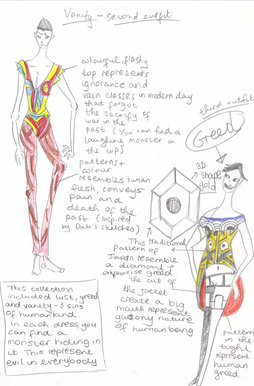 Vanity - second outfit
colourful, flashy
top represents
ignorance and
vain classes in modern day
that forgot
the secrify of
war in the
past (You can find a
laughing monster in
the top)
patterns +
colour
resembles human
flesh, conveys
pain and
death of the
past (inspired
by Dali's sketches)
third outfit
Greed
3D
shape
gold
This traditional
pattern of
Japan resemble
a diamond,
the cut of
the jacket
create a big
mouth represent
glutony nature
of human being
pattern
in the
tight
represent
human
greed.
This collection
included lust, greed
and vanity - 3 sins
of humankind.
In each dress, you
can find a
monster hiding in
it. This represent
evil in everybody